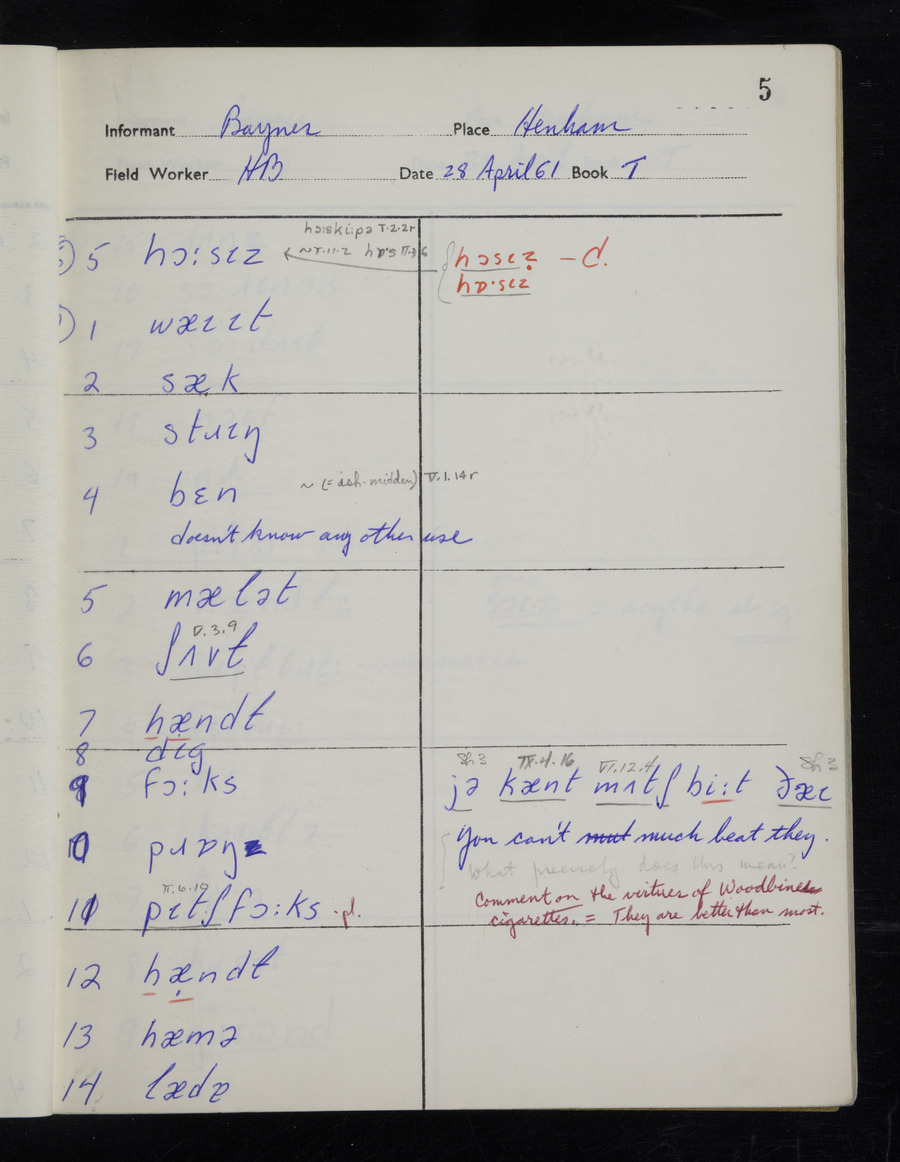 5
Informant Bayner Place Henham
Field Worker HB Date 28 April 61 Book T
5 hɔ:sɪz
~ T.11.2
hɔsɪz – c.
hɒ·sɪz
1 wæɪɪt
2 sæk
3 stɹɪŋ
4 bɛn ~ (= ash-midden) V.1.14r
doesn't know any other use
5 mælət
V.3.9
6 ʃʌvɫ
7 hændɫ
8 dɪg
9 fɔ:ks
10 pɹɒŋ
II.6.10
11 pɪtʃfɔ:ks · pl.
12 hændɫ
13 hæmə
14 lædə
Sh 3 IX.4.16 VI.12.4 Sh 3
jə kænt mʌtʃ bi:t ðæɪ
you can't much beat they.
What precisely does this mean?
Comment on the virtues of Woodbine
cigarettes. = They are better than most.